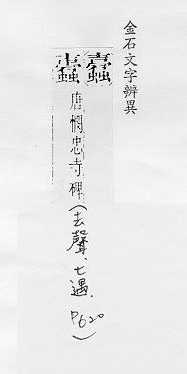 金石文字辨異
蠹
唐憫忠寺碑(去聲、七遇、P620)